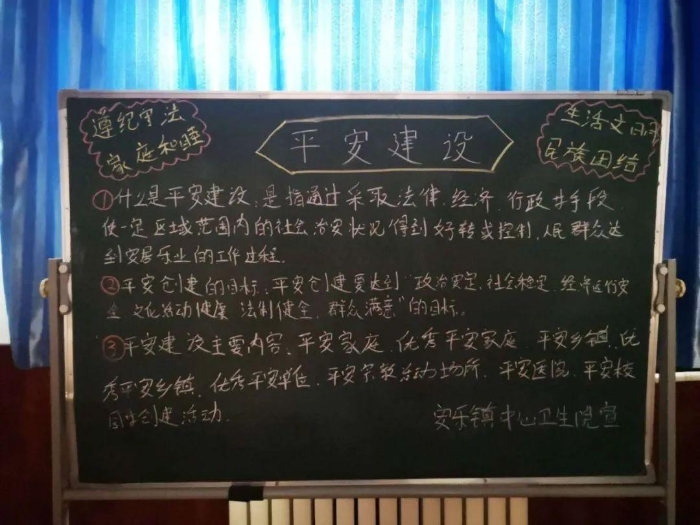 遵纪守法
家庭和睦
平安建设
生活文明
民族团结
①什么是平安建设：是指通过采取法律、经济、行政等手段
使一定区域范围内的社会治安状况得到好转或控制，人民群众达
到安居乐业的工作过程。
②平安创建的目标、平安创建要达到“政治安定、社会稳定、经济运行安
全、文化活动健康、法制健全、群众满意”的目标。
③平安建设主要内容、平安家庭、优秀平安家庭、平安乡镇、优
秀平安乡镇、优秀平安单位、平安宗教活动场所、平安医院、平安校
园等创建活动.
安乐镇中心卫生院宣